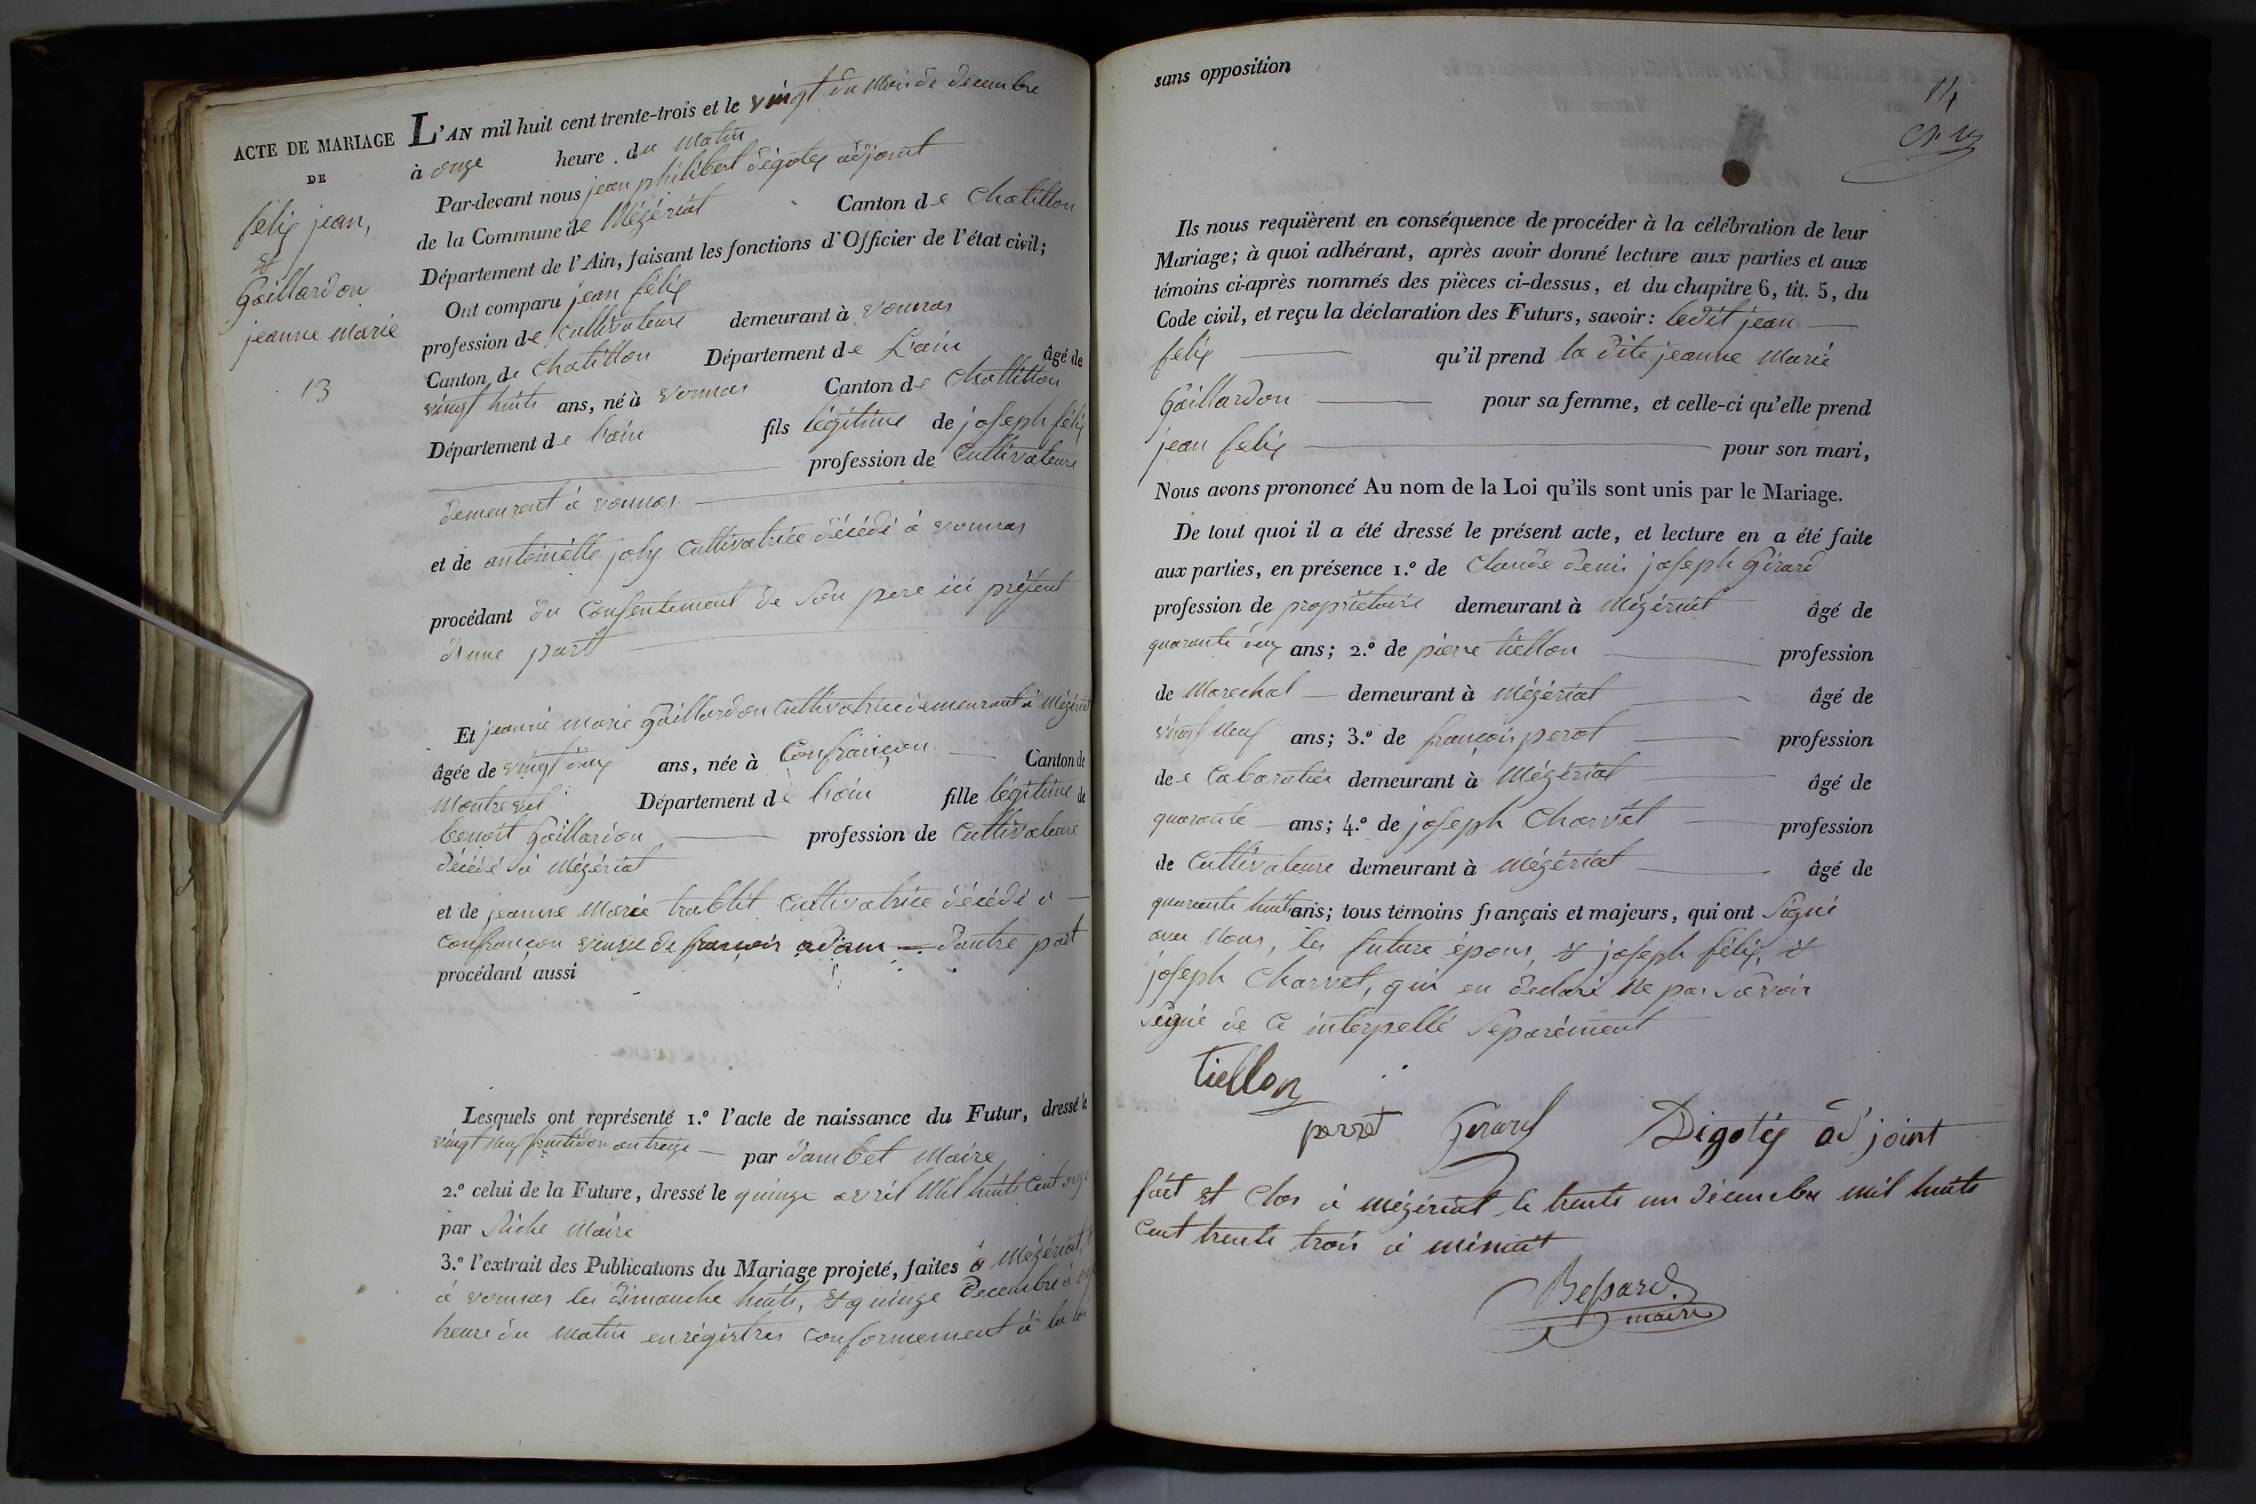 ACTE DE MARIAGE
DE
félix jean,
et
Gaillardon
jeanne marie
13
L'AN mil huit cent trente-trois et le vingt du mois de decembre
à onze heure du matin
Par-devant nous jean philibert digoty adjoint
de la Commune de Mézériat Canton de Chatillon
Département de l'Ain, faisant les fonctions d'Officier de l'état civil;
Ont comparu jean félix
profession de cultivateure demeurant à vonnas
Canton de Chatillon Département de L'ain âgé de
vingt huits ans, né à vonnas Canton de Chatillon
Département de l'ain fils légitime de joseph félix
profession de Cultivateure
demeurent à vonnas
et de antoinette joly Cultivatrice décédé à vonnas
procédant du Consentement de Son pere ici présent
d'une part
Et jeanne marie Gaillardon Cultivatrice demeurant à Mézériat
âgée de vingt deux ans, née à Confrançon Canton de
Montrevel Département de l'ain fille légitime de
benoit Gaillardon profession de Cultivateure
décédé à Mézériat
et de jeanne Marie trablit Cultivatrice décédé à
Confrançon veuve de françois adam d'autre part
procédant aussi
Lesquels ont représenté 1.º l'acte de naissance du Futur, dressé le
vingt neuf fructidor an treize par dambet Maire
2.º celui de la Future, dressé le quinze avril Mil huits Cent onze
par Maire
3.º l'extrait des Publications du Mariage projeté, faites à Mézériat, &
à vonnas les dimanche huits, & quinze Decembre à onze
heure du Matin enrégistres Conformement à la loi
sans opposition
14
Ils nous requièrent en conséquence de procéder à la célébration de leur
Mariage; à quoi adhérant, après avoir donné lecture aux parties et aux
témoins ci-après nommés des pièces ci-dessus, et du chapitre 6, tit. 5, du
Code civil, et reçu la déclaration des Futurs, savoir: ledit jean
félix qu'il prend la dite jeanne Marie
Gaillardon pour sa femme, et celle-ci qu'elle prend
jean félix pour son mari,
Nous avons prononcé Au nom de la Loi qu'ils sont unis par le Mariage.
De tout quoi il a été dressé le présent acte, et lecture en a été faite
aux parties, en présence 1.º de Claude denis joseph Girard
profession de propriétaire demeurant à Mézériat âgé de
quarante deux ans; 2.º de pierre tiellon profession
de Marechal demeurant à Mézériat âgé de
vingt neuf ans; 3.º de françois perot profession
de Cabaratier demeurant à Mézériat âgé de
quarante ans; 4.º de joseph Charvet profession
de Cultivateure demeurant à Mézériat âgé de
quarante huits ans; tous témoins français et majeurs, qui ont Signé
avec Nous, les future époux, & joseph félix, &
joseph Charvet, qui en declaré Ne pas Savoir
Signé de Ce interpellé Separément
tiellon
perrot Girard Digoty adjoint
fait et Clos à Mézériat le trente un décembre mil huits
Cent trente trois à minuit
Bessard
maire